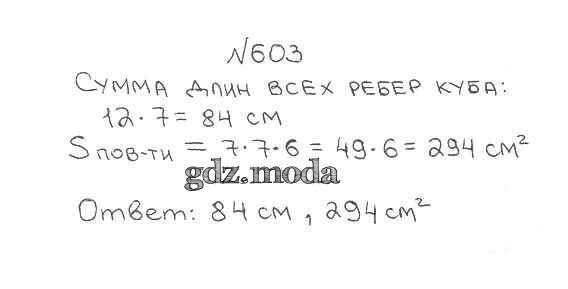 №603
Сумма длин всех ребер куба:
12·7=84 см
Sпов-ти = 7·7·6=49·6=294 см²
gdz.moda
Ответ: 84 см, 294 см²